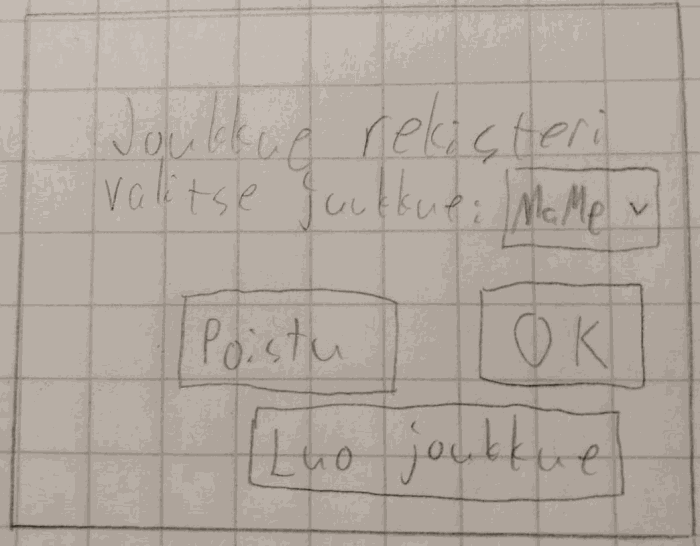 Joukkue rekisteri
valitse juukkue: MaMe v
Poistu OK
Luo joukkue